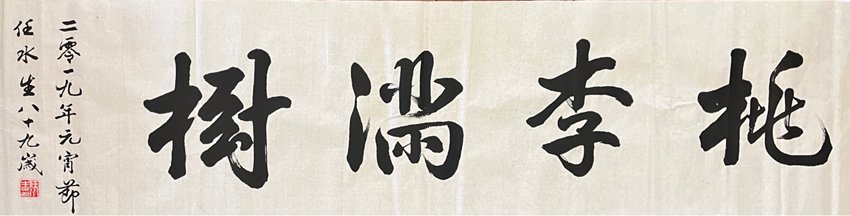 桃李满樹
二零一九年元宵節
任水生八十九歲